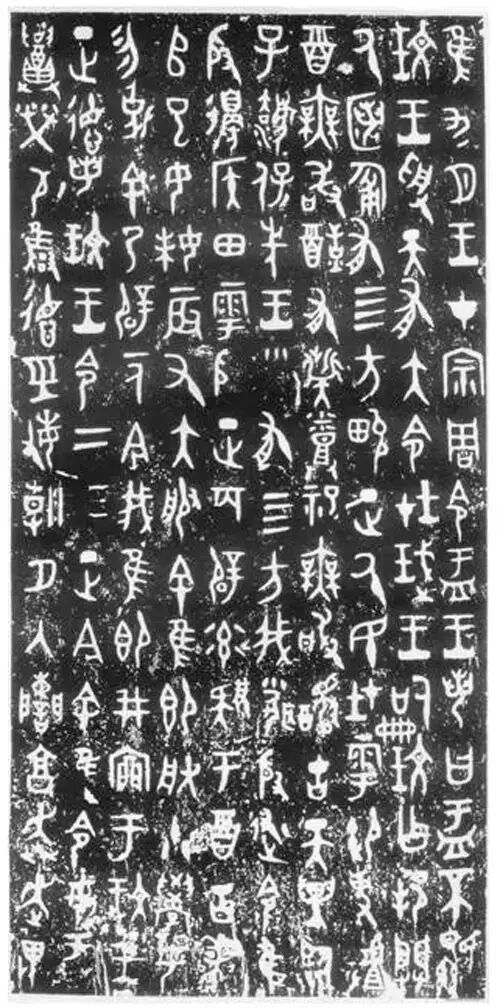 隹九月王才宗周令盂王若曰盂不顯
玟王受天有大令在珷王嗣玟乍邦闢
厥匿匍有四方畯正厥民在雩御事
酉無敢酖有祡烝祀無敢古天異臨
子法保先王有四方我聞殷述令隹
殷邊侯田雩殷正百辟率肄于酉古喪
𠂤巳女妹辰又大服余隹即朕小學女
勿剋余乃辟一人今我隹即井㐭于玟王
正德若玟王令二三正今余隹令女盂
召榮敬雝德巠敏朝夕入讕享奔走畏